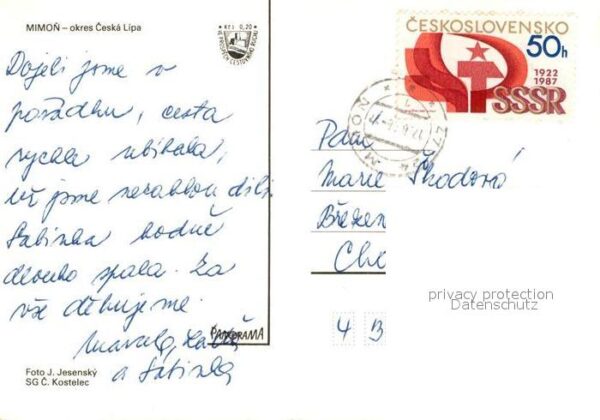 MIMOŇ – okres Česká Lípa
Kčs 0,20
VE PROSPĚCH CESTOVNÍHO RUCHU
Dojeli jsme v
pořádku, cesta
rychle ubíhala,
už jsme nezabloudili.
Sabinka hodně
dlouho spala. Za
vše děkujeme.
Marcela,
a Sabinka
PANORAMA
Foto J. Jesenský
SG Č. Kostelec
ČESKOSLOVENSKO
50h
1922
1987
SSSR
MIMOŇ
Paní
Marie Škodová
Březen
Che
4 B
privacy protection
Datenschutz